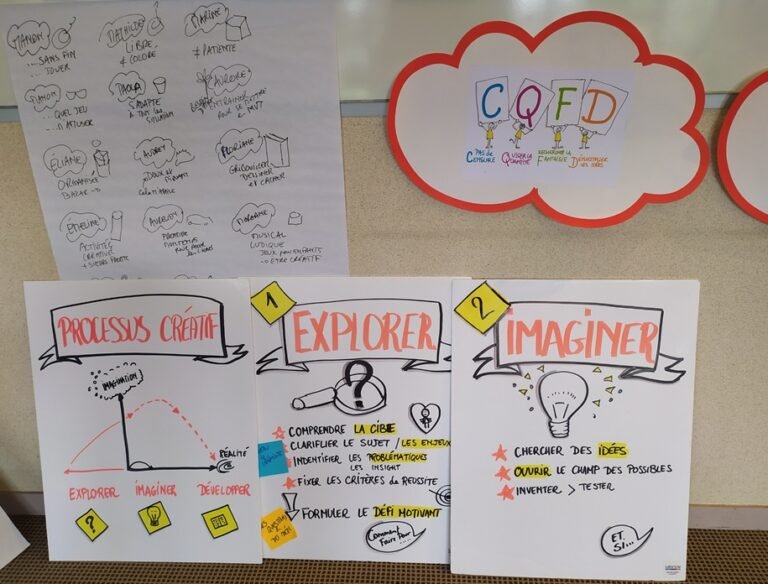 MANON
...SANS FIN
... JOUER
MATHILDE
LIBRE
≠ COLORÉ
MARINE
≠ PATIENTE
MANON
QUEL JEU
PAOLA
S'ADAPTE
À TOUT
AURORE
ELIANE
ORGANISER
BAZAR
AUDREY
DOUX et
FLORIANE
GRIBOUILLER
DESSINER
et CACHER
EMELINE
ACTIVITÉS
CRÉATIVE
AURELIEN
MORGANE
MUSICAL
LUDIQUE
JEUX pour ENFANTS
→ ETRE CRÉATIF
CQFD
PAS de CENSURE
QUANTITÉ
RECHERCHER LA FANTAISIE
DÉMULTIPLIER LES IDÉES
PROCESSUS CRÉATIF
IMAGINATION
RÉALITÉ
EXPLORER IMAGINER DÉVELOPPER
?
1
EXPLORER
?
COMPRENDRE LA CIBLE
CLARIFIER LE SUJET / LES ENJEUX
INDENTIFIER LES PROBLÉMATIQUES
LES INSIGHT
FIXER LES CRITÈRES de RÉUSSITE
FORMULER LE DÉFI MOTIVANT
Comment
Faire Pour...
2
IMAGINER
CHERCHER DES IDÉES
OUVRIR LE CHAMP DES POSSIBLES
INVENTER > TESTER
ET
SI...